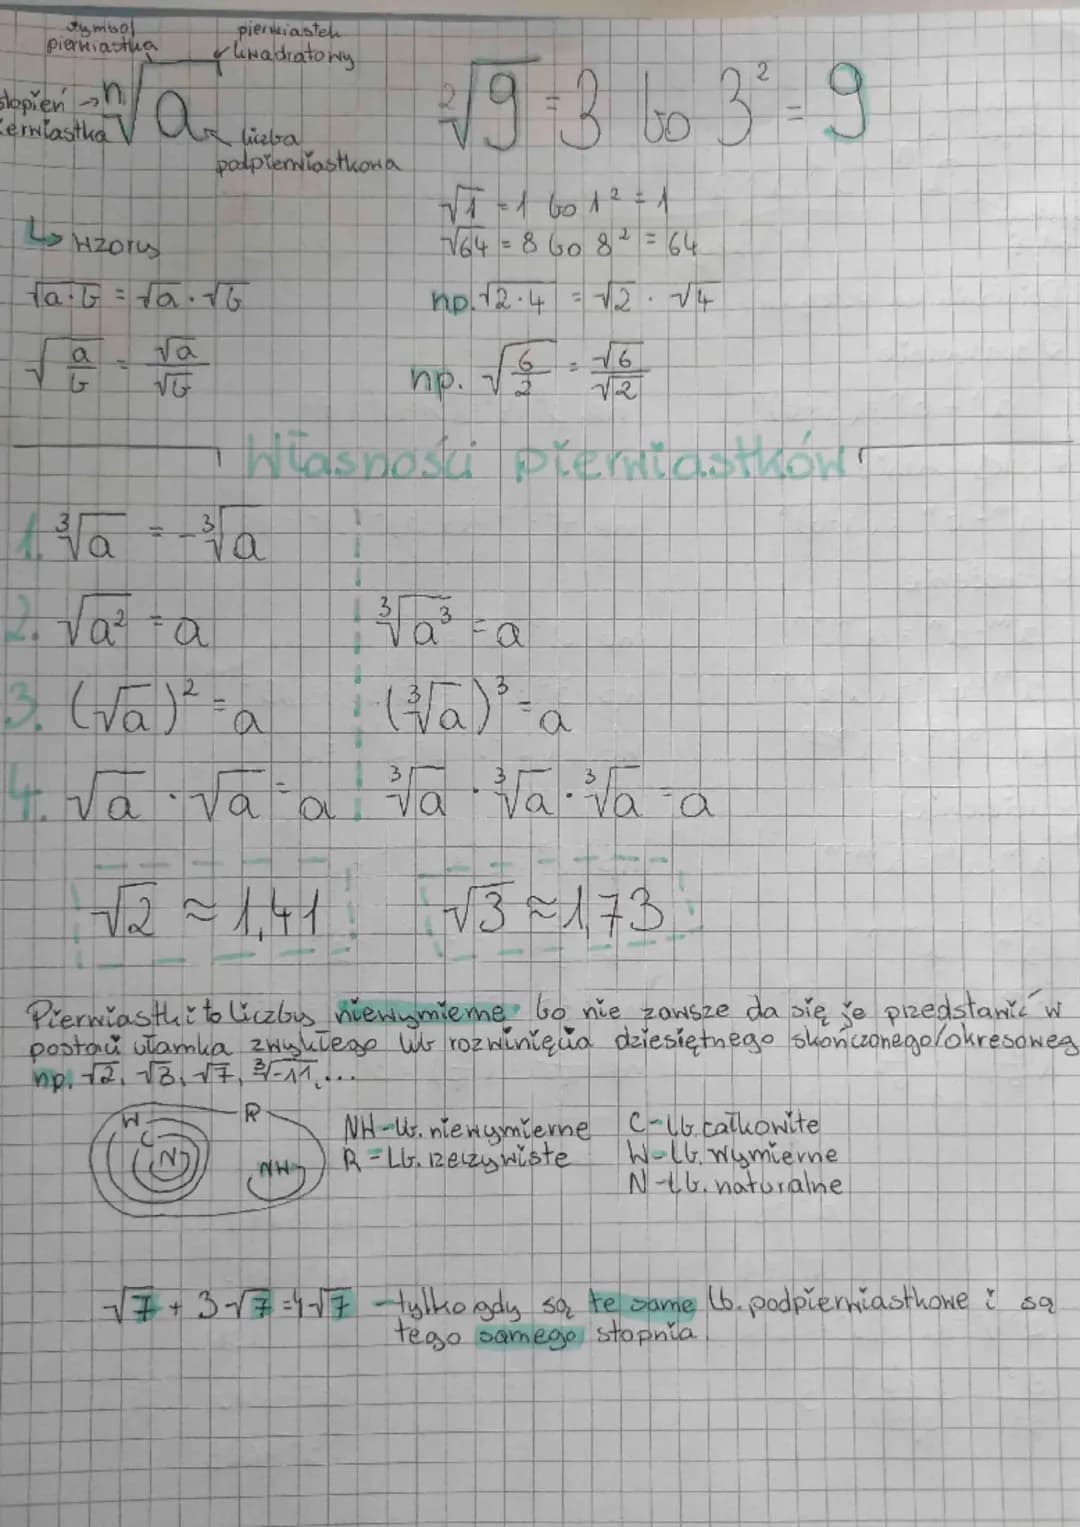 symbol pierwiastka
pierwiastek kwadratowy
stopień → ierwiastka
ⁿ√a
liczba podpierwiastkowa
²√9 = 3 bo 3² = 9
√1 = 1 bo 1² = 1
√64 = 8 bo 8² = 64
↳ wzory
√a·b = √a · √b
np. √2·4 = √2 · √4
√a/b = √a/√b
np. √6/2 = √6/√2
Własności pierwiastków
1. ³√a = -³√a
2. √a² = a ³√a³ = a
3. (√a)² = a (³√a)³ = a
4. √a · √a = a ³√a · ³√a · ³√a = a
√2 ≈ 1,41 √3 ≈ 1,73
Pierwiastki to liczby niewymierne bo nie zawsze da się je przedstawić w
postaci ułamka zwykłego lub rozwinięcia dziesiętnego skończonego/okresoweg
np. √2, √3, √7, ³√-11, ...
W C N R NW
NW-lb. niewymierne C-lb. całkowite
R = Lb. rzeczywiste W-lb. wymierne
N-lb. naturalne
√7 + 3√7 = 4√7 - tylko gdy są te same lb. podpierwiastkowe i są
tego samego stopnia.